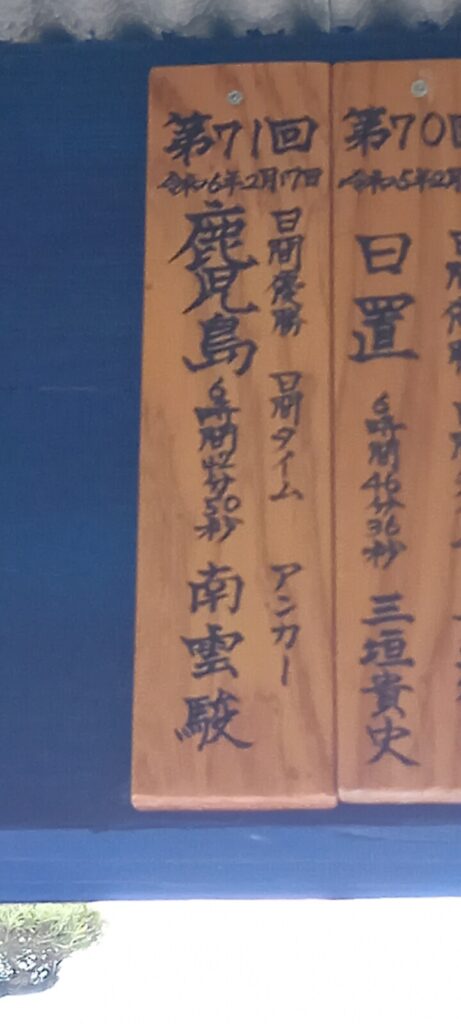 第71回
令和6年2月17日
日間優勝 日間タイム アンカー
鹿児島 6時間42分50秒 南雲駿
第70回
令和5年2月
日間優勝
日置 6時間46分36秒 三垣貴史